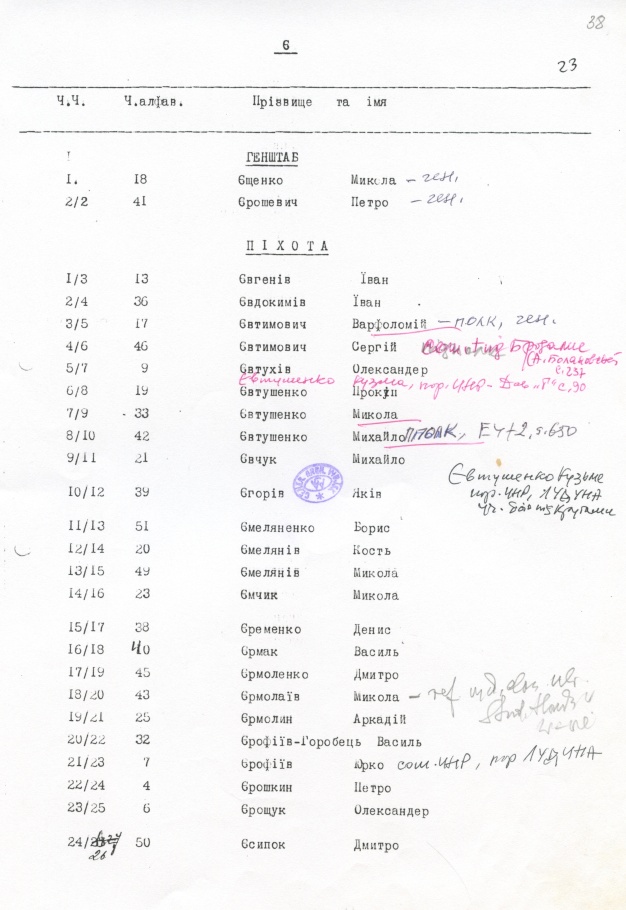 38
6
23
Ч.Ч. Ч.алфав. Прізвище та імя
ГЕНШТАБ
I. I8 Єщенко Микола – ген.
2/2 4I Єрошевич Петро – ген.
ПІХОТА
I/3 I3 Євгенів Їван
2/4 36 Євдокимів Їван
3/5 I7 Євтимович Варфоломій – полк, ген.
4/6 46 Євтимович Сергій
с. 237
5/7 9 Євтухів Олександер
Євтушенко Кузьма, пор. УНР – с. 90
6/8 I9 Євтушенко Прокіп
7/9 33 Євтушенко Микола
8/I0 42 Євтушенко Михайло пполк, EУ+2, s. 650
9/II 2I Євчук Михайло
Євтушенко Кузьма
пор. УНР,
I0/I2 39 Єгорів Яків
II/I3 5I Ємеляненко Борис
I2/I4 20 Ємелянів Кость
I3/I5 49 Ємелянів Микола
I4/I6 23 Ємчик Микола
I5/I7 38 Єременко Денис
I6/I8 40 Єрмак Василь
I7/I9 45 Єрмоленко Дмитро
I8/20 43 Єрмолаїв Микола – ref
I9/2I 25 Єрмолин Аркадій
20/22 32 Єрофіїв-Горобець Василь
2I/23 7 Єрофіїв Юрко сот. УНР, пор
22/24 4 Єрошкин Петро
23/25 6 Єрощук Олександер
24/ 50 Єсипок Дмитро
26